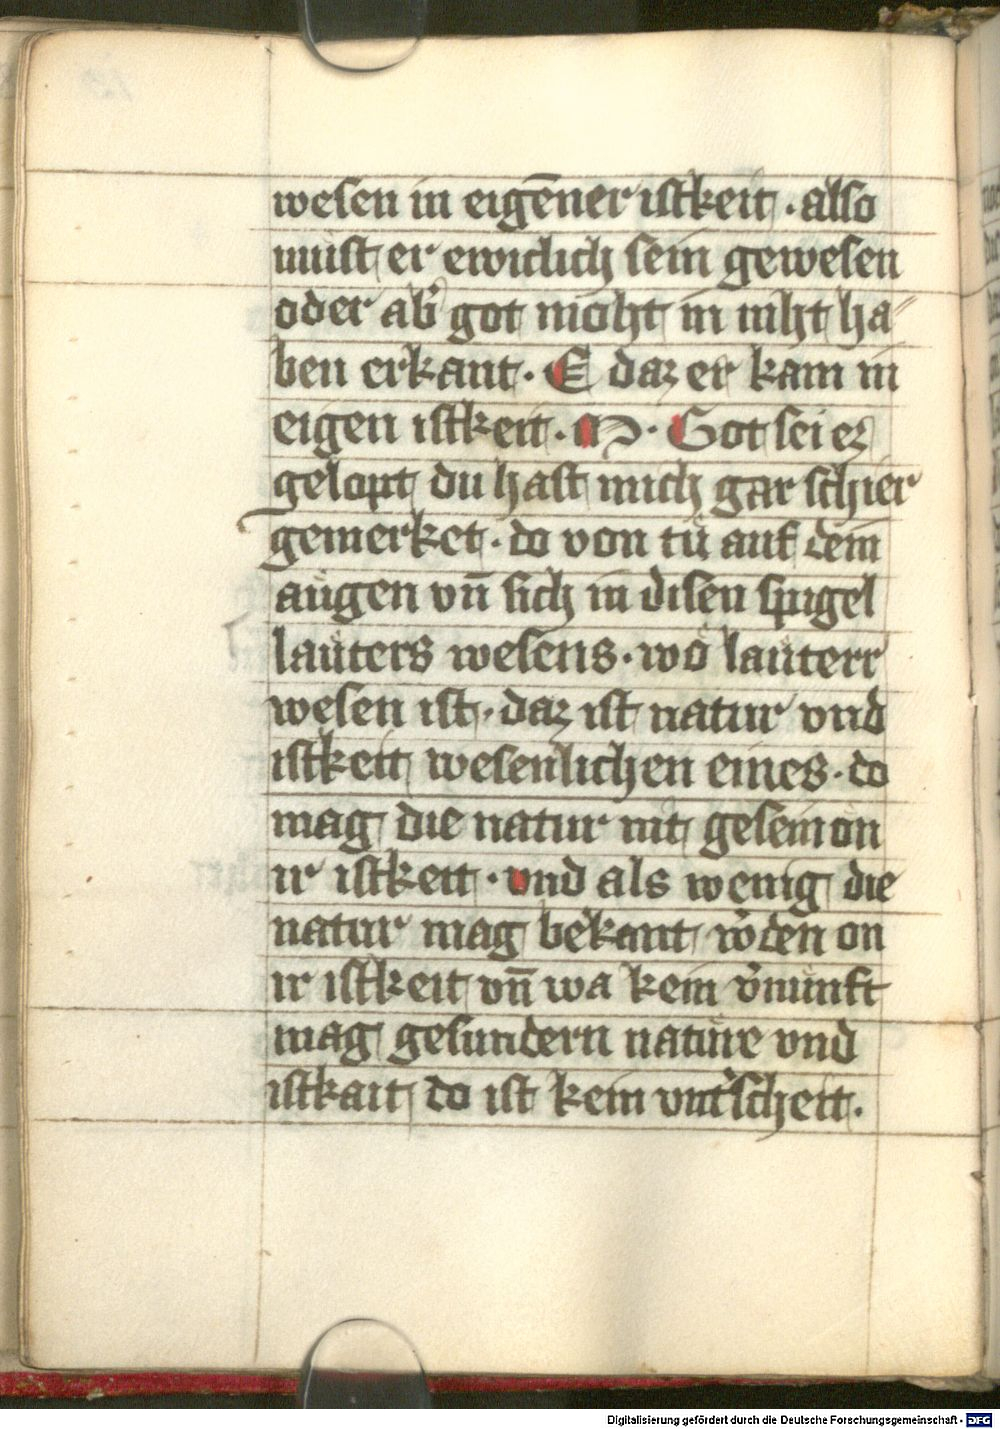 wesen in eigēner istkeit · also
must er ewiclich sein gewesen
oder ab͛ got moht in niht ha⸗
ben erkant · E daz er kam in
eigen istkeit · M · Got sei ez
gelopt du hast mich gar schier
gemerket · do von tů auf dein
augen vn̄ sich in disen spigel
lauters wesens · wo lauterr
wesen ist · daz ist natur vnd
istkeit wesenlichen eines · do
mag die natur nit gesein on
ir istkeit · vnd als wenig die
natur mag bekant w͛den on
ir istkeit vn̄ wa kein v͛nunft
mag gesundern nature vnd
istkait do ist kein vnt͛scheit .
Digitalisierung gefördert durch die Deutsche Forschungsgemeinschaft - DFG